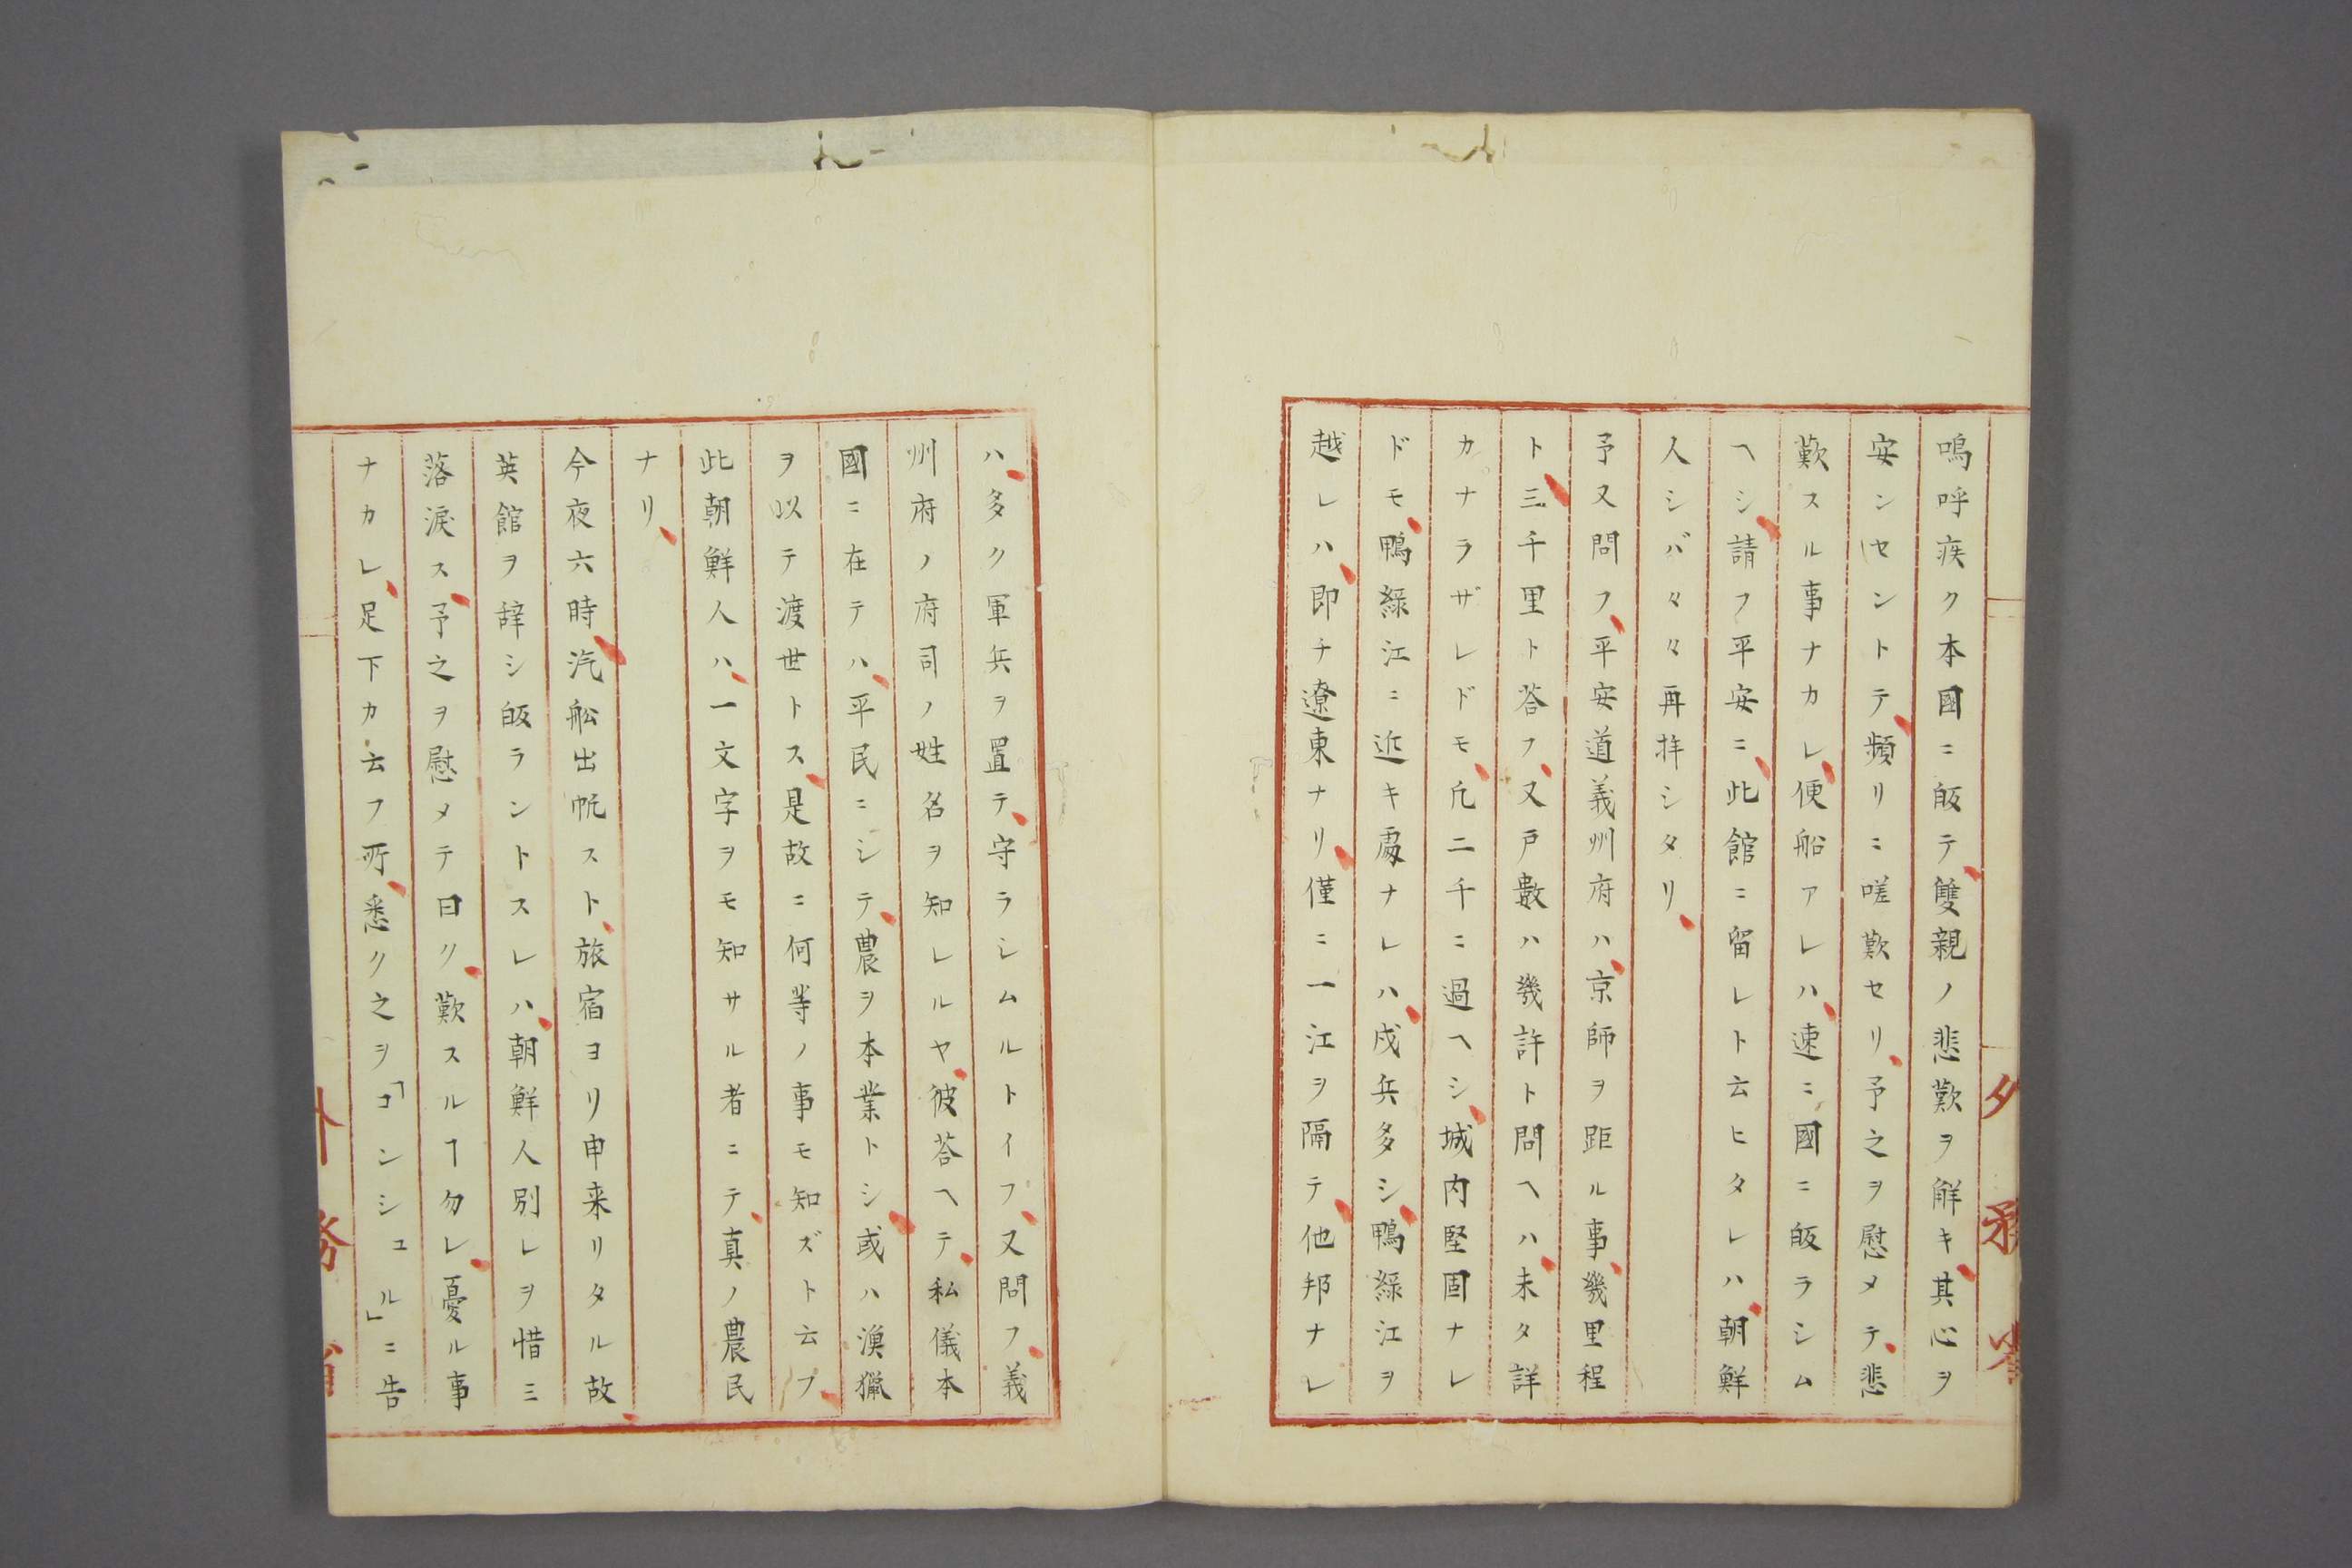 嗚呼疾ク本國ニ皈テ、雙親ノ悲歎ヲ解キ、其心ヲ
安ンセントテ、頻リニ嗟歎セリ、予之ヲ慰メテ、悲
歎スル事ナカレ、便船アレハ、速ニ國ニ皈ラシム
ヘシ、請フ平安ニ、此館ニ留レト云ヒタレハ、朝鮮
人シバ々々再拝シタリ、
予又問フ、平安道義州府ハ、京師ヲ距ル事、幾里程
ト、三千里ト答フ、又戸數ハ幾許ト問ヘハ、未タ詳
カナラザレドモ、凡二千ニ過ヘシ、城内堅固ナレ
ドモ、鴨緑江ニ近キ處ナレハ、戍兵多シ、鴨緑江ヲ
越レハ、即チ遼東ナリ、僅ニ一江ヲ隔テ、他邦ナレ
外務省
ハ、多ク軍兵ヲ置テ、守ラシムルトイフ、又問フ、義
州府ノ府司ノ姓名ヲ知レルヤ、彼答ヘテ、私儀本
國ニ在テハ、平民ニシテ、農ヲ本業トシ、或ハ漁猟
ヲ以テ渡世トス、是故ニ何等ノ事モ知ズト云フ、
此朝鮮人ハ、一文字ヲモ知サル者ニテ、真ノ農民
ナリ、
今夜六時、汽舩出帆スト、旅宿ヨリ申来リタル故、
英館ヲ辞シ皈ラントスレハ、朝鮮人別レヲ惜ミ
落涙ス、予之ヲ慰メテ曰ク、歎スルヿ勿レ、憂ル事
ナカレ、足下カ云フ所、悉ク之ヲ「コンシュル」ニ告
外務省